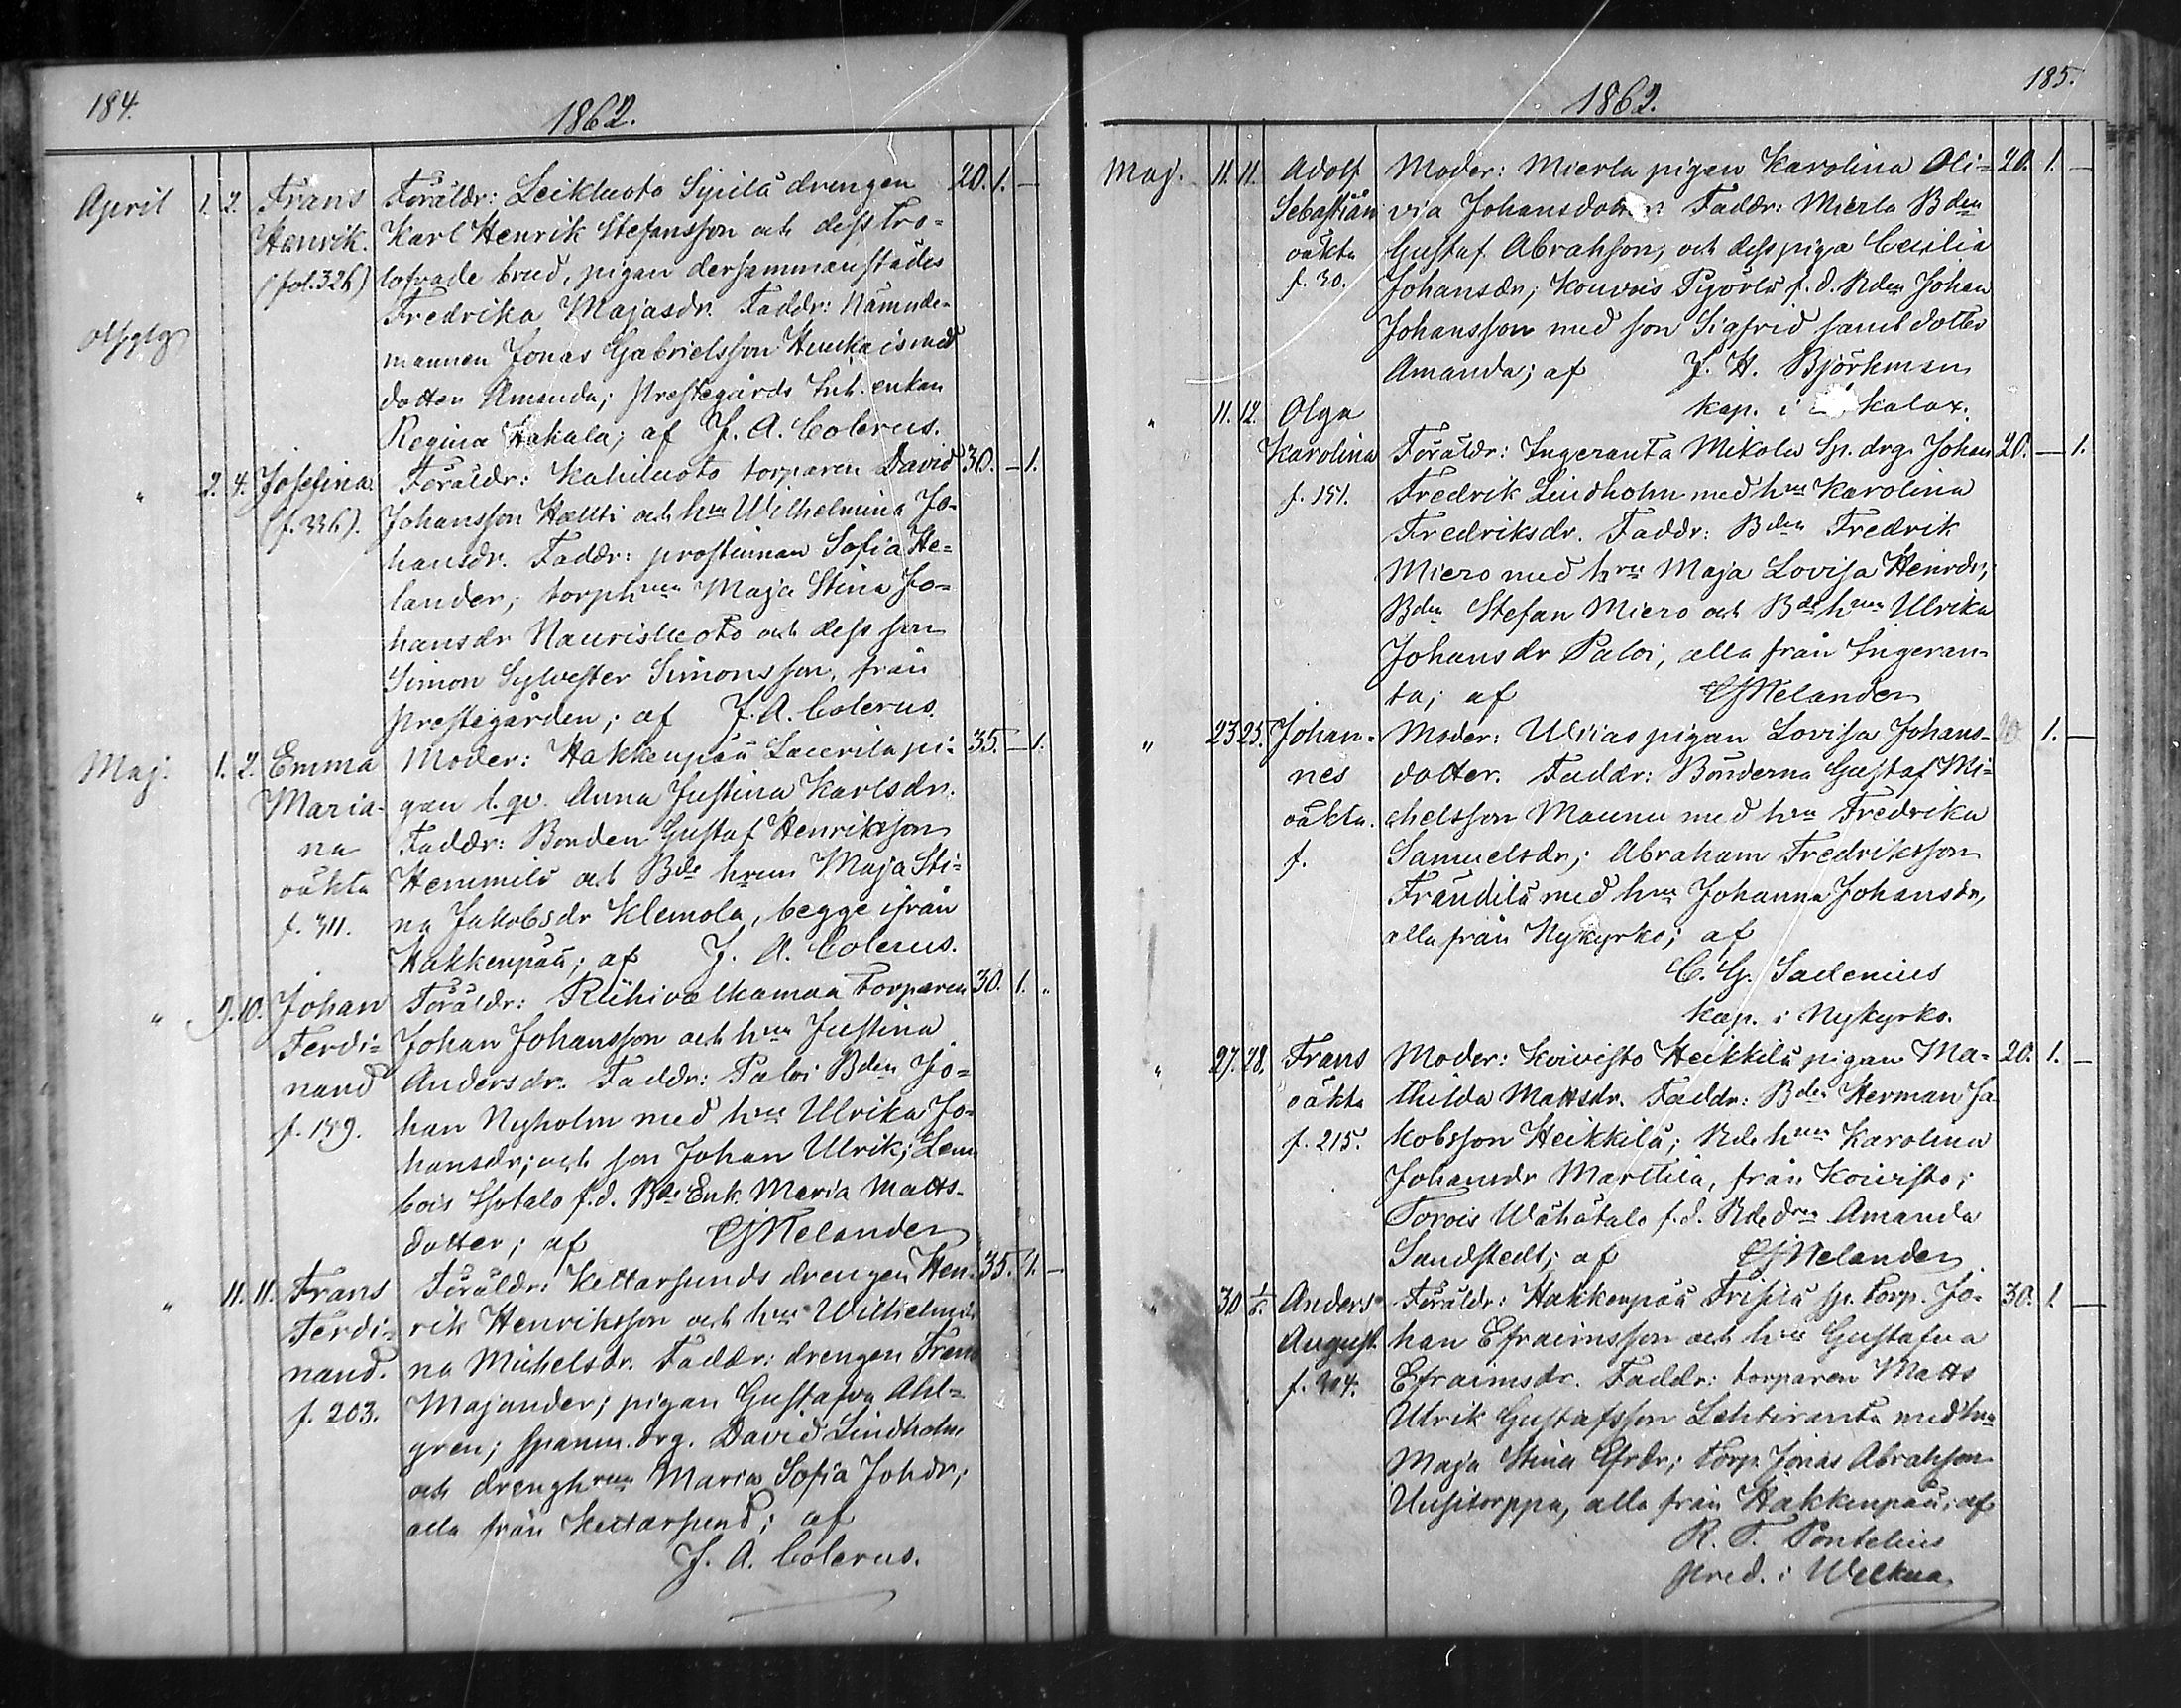 184.
1862.
April 1. 2. Frans Föräldr: Leikluoto Sipilä drengen 20. 1. —
Henrik. Karl Henrik Stefansson och dess tro-
(fol. 326) lofvade brud, pigan dersammanstädes
Fredrika Majasdr. Faddr: Nämnde-
mannen Jonas Gabrielsson med
dotter Amanda; Prestegårds Inh. enkan
Regina Hakala; af J. A. Colerus.
" 2. 4. Josefina. Föräldr: Kahiluoto torparen David 30. — 1.
(f. 336). Johansson och hru Wilhelmina Jo-
hansdr. Faddr: prostinnan Sofia He-
lander; torphrun Maja Stina Jo-
hansdr Naurisluoto och dess son
Simon Sylvester Simonsson, från
Prestegården; af J. A. Colerus.
Maj. 1. 2. Emma Moder: Hakkenpää Laurila pi- 35. — 1.
Maria- gan l. qv. Anna Justina Karlsdr.
na Faddr: Bonden Gustaf Henriksson
oäkta Hemmilä och Bde hrun Maja Sti-
f. 311. na Jakobsdr Klemola, begge ifrån
Hakkenpää; af J. A. Colerus.
" 9. 10. Johan Föräldr: Riihivalkamaa torparen 30. 1. "
Ferdi- Johan Johansson och hru Justina
nand Andersdr. Faddr: Paloi Bden Jo-
f. 159. han Nyholm med hru Ulrika Jo-
hansdr; och son Johan Ulrik; Lem-
bois Isotalo f.d. Bde Enk. Maria Matts-
dotter; af Melander
" 11. 11. Frans Föräldr: Kettarsunds drengen Hen- 35. 1. —
Ferdi- rik Henriksson och hru Wilhelmi-
nand. na Michelsdr. Faddr: drengen Frans
f. 203. Majander; pigan Gustafva Ahl-
gren; Spanm. drg. David Lindholm
och drenghrun Maria Sofia Johdr;
alla från Kettarsund; af
J. A. Colerus.
185.
1862.
Maj. 11. 11. Adolf Moder: Mierla pigan Karolina Oli- 20. 1. —
Sebastian via Johansdotter. Faddr: Mierla Bden
oäkta Gustaf Abrahsson, och dess piga Cecilia
f. 30. Johansdr; Kouvois Pyörlä f. d. Bden Johan
Johansson med son Sigfrid samt dotter
Amanda; af J. H. Björkman
kap. i kalax.
" 11. 12. Olga
Karolina Föräldr: Ingeranta Mikola Sp. drg. Johan 20. — 1.
f. 151. Fredrik Lindholm med hru Karolina
Fredriksdr. Faddr: Bden Fredrik
Miero med hru Maja Lovisa Henrdr;
Bden Stefan Miero och Bde hrun Ulrika
Johansdr Paloi, alla från Ingeran-
ta; af Melander
" 23 25. Johan- Moder: pigan Lovisa Johans- 20. 1. —
nes dotter. Faddr: Bönderna Gustaf Mi-
oäkta. chelsson Maunu med hru Fredrika
f. Samuelsdr; Abraham Fredriksson
med hru Johanna Johansdr,
alla från Nykyrko; af
C. G. Sadenius
kap. i Nykyrko.
" 27. 28. Frans Moder: Koivisto Heikkilä pigan Ma- 20. 1. —
oäkta thilda Mattsdr. Faddr: Bden Herman Ja-
f. 215. kobsson Heikkilä; Bde hrun Karolina
Johansdr Marttila, från Koivisto;
Torois Wähätalo f. d. Bde drn Amanda
Sandstedt; af Melander
" 30 1/6. Anders Föräldr: Hakkenpää sp. Torp. Jo- 30. 1. —
August. han Efraimsson och hru Gustafva
f. 304. Efraimsdr. Faddr: torparen Matts
Ulrik Gustafsson Lehtiranta med hru
Maja Stina Efrdr; Torp. Jonas Abrahsson
Uusitorppa, alla från Hakkenpää; af
R. T. Pontelius
Pred. i Welkua